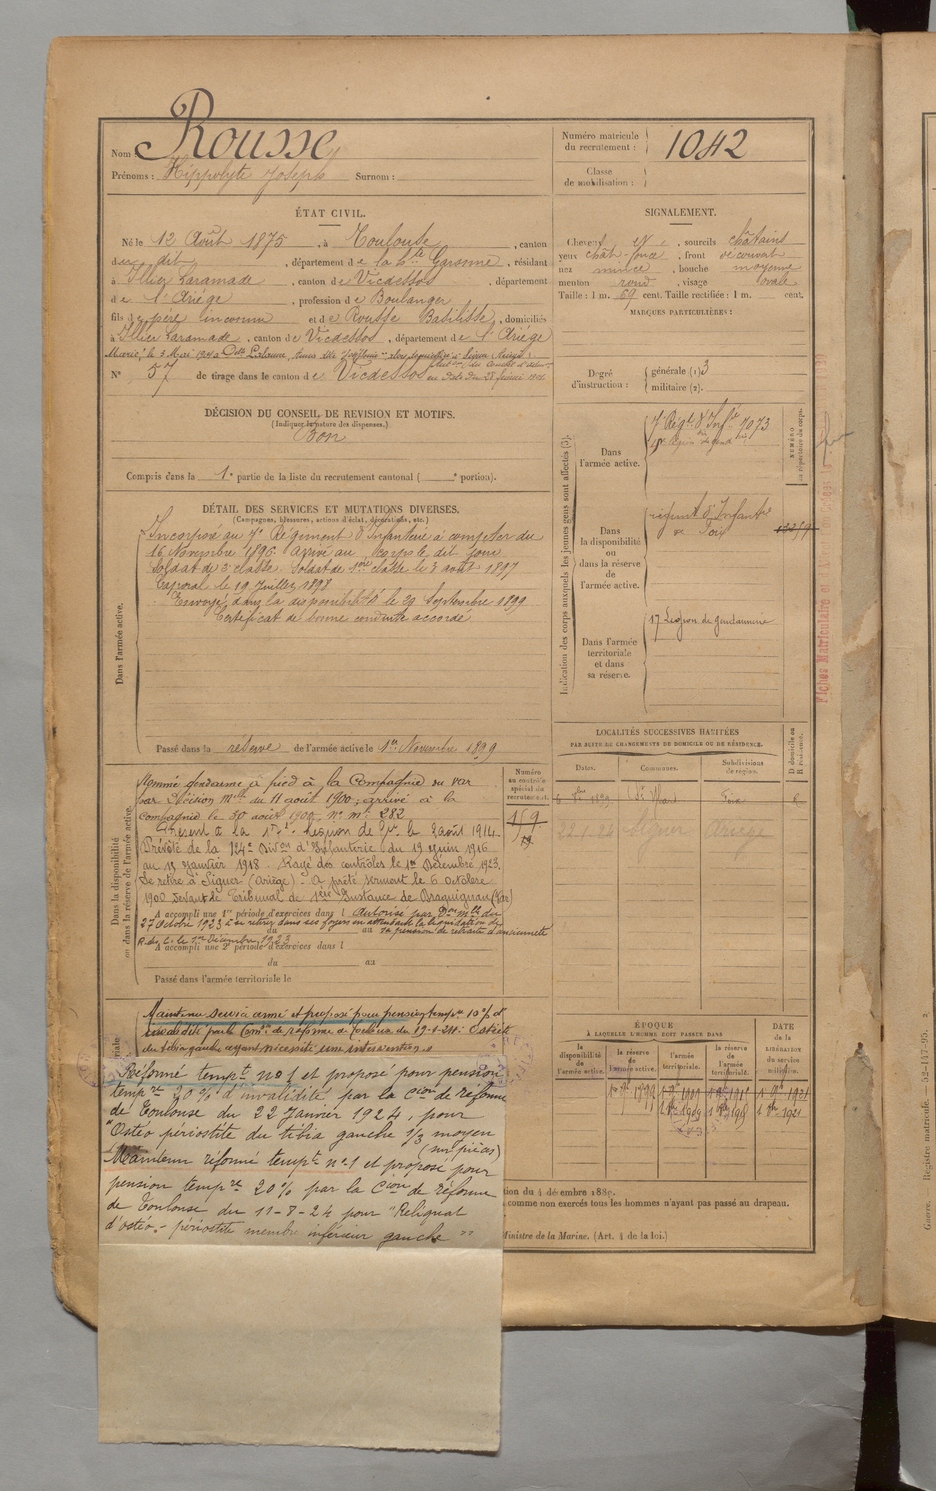 Nom : Rousse
Prénoms : Hippolyte Joseph Surnom :
Numéro matricule du recrutement : 1042
Classe de mobilisation :
ÉTAT CIVIL.
Né le 12 Août 1875, à Toulouse, canton
du dit, département de la Hte Garonne, résidant
à Illier Laramade, canton de Vicdessos, département
de l'Ariège, profession de Boulanger
fils de père inconnu et de Rousse Babilisse, domiciliés
à Illier Laramade, canton de Vicdessos, département de l'Ariège
Marié le 5 Mai 1904 à
N° 57 de tirage dans le canton de Vicdessos
SIGNALEMENT.
Cheveux et, sourcils châtains
yeux chât-foncé, front découvert
nez mince, bouche moyenne
menton rond, visage ovale
Taille : 1 m. 69 cent. Taille rectifiée : 1 m. cent.
MARQUES PARTICULIÈRES :
Degré d'instruction : générale (1) 3
militaire (2).
DÉCISION DU CONSEIL DE REVISION ET MOTIFS.
(Indiquer la nature des dispenses.)
Bon
Compris dans la 1e partie de la liste du recrutement cantonal ( e portion).
DÉTAIL DES SERVICES ET MUTATIONS DIVERSES.
(Campagnes, blessures, actions d'éclat, décorations, etc.)
Dans l'armée active.
Incorporé au 7e Régiment d'Infanterie à compter du
16 Novembre 1896. Arrivé au corps le dit jour
Soldat de 2e classe. Soldat de 1ère classe le 3 août 1897
Caporal le 19 Juillet 1898
Envoyé dans la disponibilité le 29 Septembre 1899
Certificat de bonne conduite accordé
Passé dans la réserve de l'armée active le 1er Novembre 1899
Dans la disponibilité ou dans la réserve de l'armée active.
Nommé gendarme à pied à la Compagnie du Var
par décision mlle du 11 août 1900; arrivé à la
Compagnie le 30 août 1900, No ml 282
Présent à la Légion de Gie le 2 août 1914
Prévôté de la 124e Divon d'Infanterie du 19 juin 1916
au 15 janvier 1918. Rayé des contrôles le 1er Décembre 1923.
Se retire à Siguer (Ariège). A prêté serment le 6 Octobre
1900 devant le Tribunal de 1ère Instance de Draguignan (Var)
A accompli une 1re période d'exercices dans l
Autorisé par Don mlle du
27 Octobre 1923 à se retirer dans ses foyers en attendant la liquidation de
du au
sa pension de retraite d'ancienneté
R. des C. le 1er Décembre 1923
A accompli une 2e période d'exercices dans l
du au
Passé dans l'armée territoriale le
Numéro au contrôle spécial du recrutement.
159
Indication des corps auxquels les jeunes gens sont affectés (3).
NUMÉRO au répertoire du corps.
Dans l'armée active.
7e Régt d'Infie 7073
Dans la disponibilité ou dans la réserve de l'armée active.
régiment d'Infanterie
de Foix
Dans l'armée territoriale et dans sa réserve.
17 Légion de gendarmerie
LOCALITÉS SUCCESSIVES HABITÉES
PAR SUITE DE CHANGEMENTS DE DOMICILE OU DE RÉSIDENCE.
Dates. Communes. Subdivisions de région. D domicile ou R résidence.
22-1-24 Siguer Ariège
ÉPOQUE
À LAQUELLE L'HOMME DOIT PASSER DANS
la disponibilité de l'armée active. la réserve de l'armée active. l'armée territoriale. la réserve de l'armée territoriale.
DATE de la LIBÉRATION du service militaire.
Maintenu service armé et proposé pour pension tempre 10% d'
invalidité par la Comon de réforme de Toulouse du
du tibia gauche ayant nécessité une intervention.
Réformé tempt no 1 et proposé pour pension
tempre 20% d'invalidité par la Cion de réforme
de Toulouse du 22 Janvier 1924, pour
"Ostéo périostite du tibia gauche 1/3 moyen
Maintenu réformé tempt no 1 et proposé pour
pension tempre 20% par la Cion de réforme
de Toulouse du 11-8-24 pour "Reliquat
d'ostéo-périostite membre inférieur gauche"
tion du 4 décembre 1889.
comme non exercés tous les hommes n'ayant pas passé au drapeau.
Ministre de la Marine. (Art. 4 de la loi.)
Fiches Matriculaire et
Guerre. Registre matricule. 52-147-95.